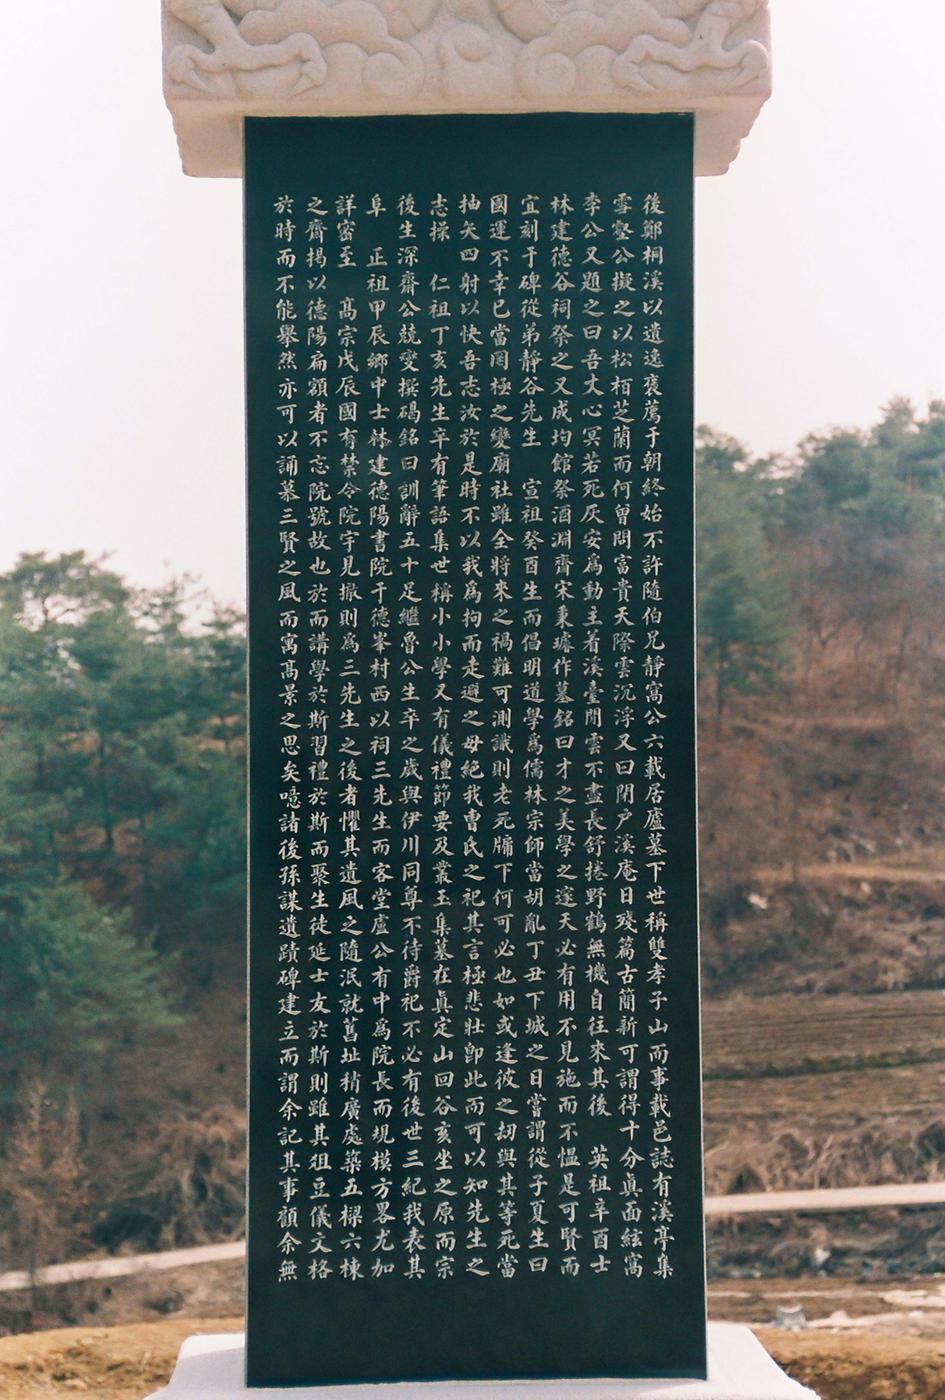 後鄭桐溪以遺逸褒薦于朝終始不許隨伯兄靜窩公六載居廬墓下世稱雙孝子山而事載邑誌有溪亭集
雪壑公擬之以松栢芝蘭而何曾問富貴天際雲沉浮又曰閉戶溪庵日殘篇古簡新可謂得十分眞面絃窩
李公又題之曰吾丈心冥若死灰安爲動主着溪臺閒雲不盡長舒捲野鶴無機自往來其後 英祖辛酉士
林建德谷祠祭之又成均館祭酒淵齊宋秉璿作墓銘曰才之美學之邃天必有用不見施而不慍是可賢而
宜刻于碑從弟靜谷先生 宣祖癸酉生而倡明道學爲儒林宗師當胡亂丁丑下城之日嘗謂從子夏生曰
國運不幸已當罔極之變廟社雖全將來之禍難可測識則老死牖下何可必也如或逢彼之劫與其等死當
抽矢四射以快吾志汝於是時不以我爲拘而走避之毋絶我曺氏之祀其言極悲壯卽此而可以知先生之
志操 仁祖丁亥先生卒有筆語集世稱小小學又有儀禮節要及叢玉集墓在眞定山回谷亥坐之原而宗
後生深齋公兢燮撰碣銘曰訓辭五十足繼魯公生卒之歲與伊川同尊不待爵祀不必有後世三紀我表其
阜 正祖甲辰鄉中士林建德陽書院于德峯村西以祠三先生而客堂盧公有中爲院長而規模方畧尤加
詳密至 高宗戊辰國有禁令院宇見撤則爲三先生之後者懼其遺風之隨泯就舊址稍廣處築五樑六棟
之齋揭以德陽扁額者不忘院號故也於而講學於斯習禮於斯而聚生徒延士友於斯則雖其俎豆儀文格
於時而不能擧然亦可以誦慕三賢之風而寓高景之思矣噫諸後孫謀遺蹟碑建立而謂余記其事顧余無